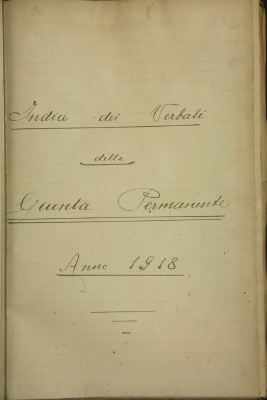 Indice dei Verbali
della
Giunta Permanente
Anno 1918.